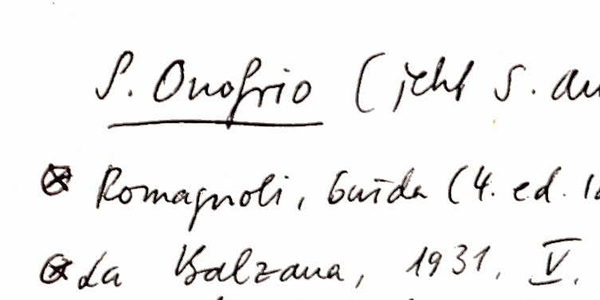 S. Onofrio (jetzt S. An
Romagnoli, Guida (4. ed. 18
La Balzana, 1931, V.